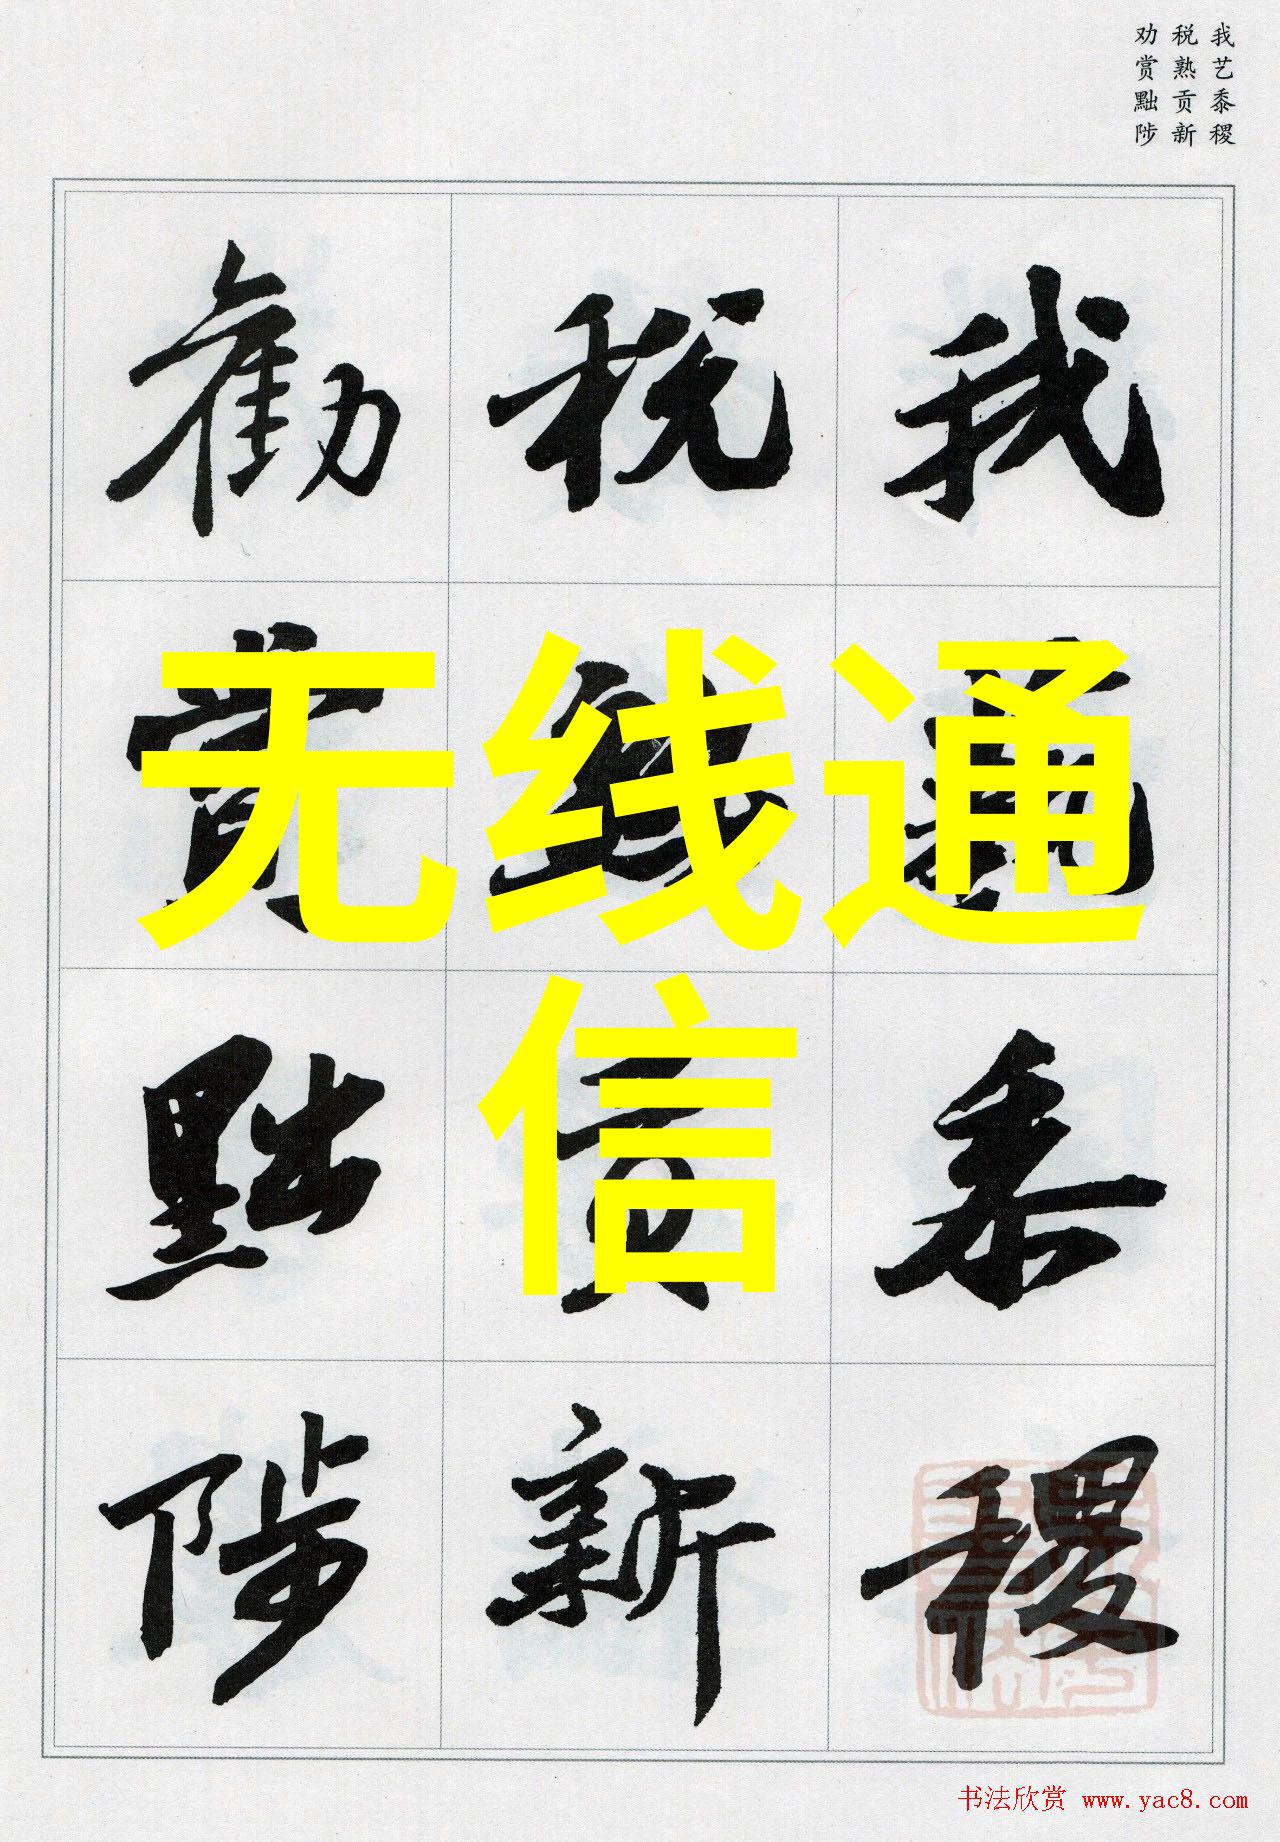 我艺黍稷
税熟贡新
劝赏黜陟
我藝黍稷
税熟貢新
勸賞黜陟
无线通
信
书法欣赏 www.yac8.com